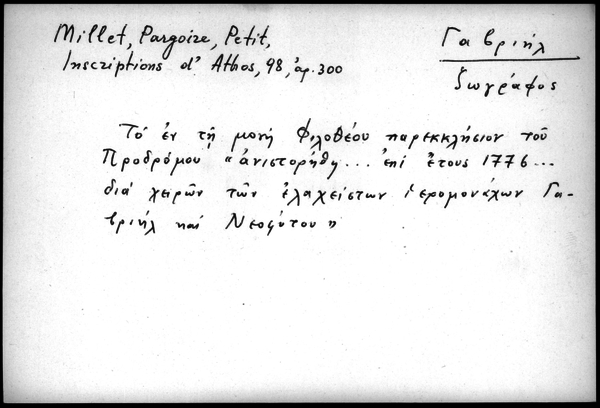 Millet, Pargoire, Petit,
Inscriptions d' Athos, 98, ἀρ. 300
Γαβριήλ
ζωγράφος
Τό ἐν τῇ μονῇ Φιλοθέου παρεκκλήσιον τοῦ
Προδρόμου "ἀνιστορήθη... ἐπί ἔτους 1776...
διά χειρῶν τῶν ἐλαχείστων ἱερομονάχων Γα-
βριήλ καί Νεοφύτου"